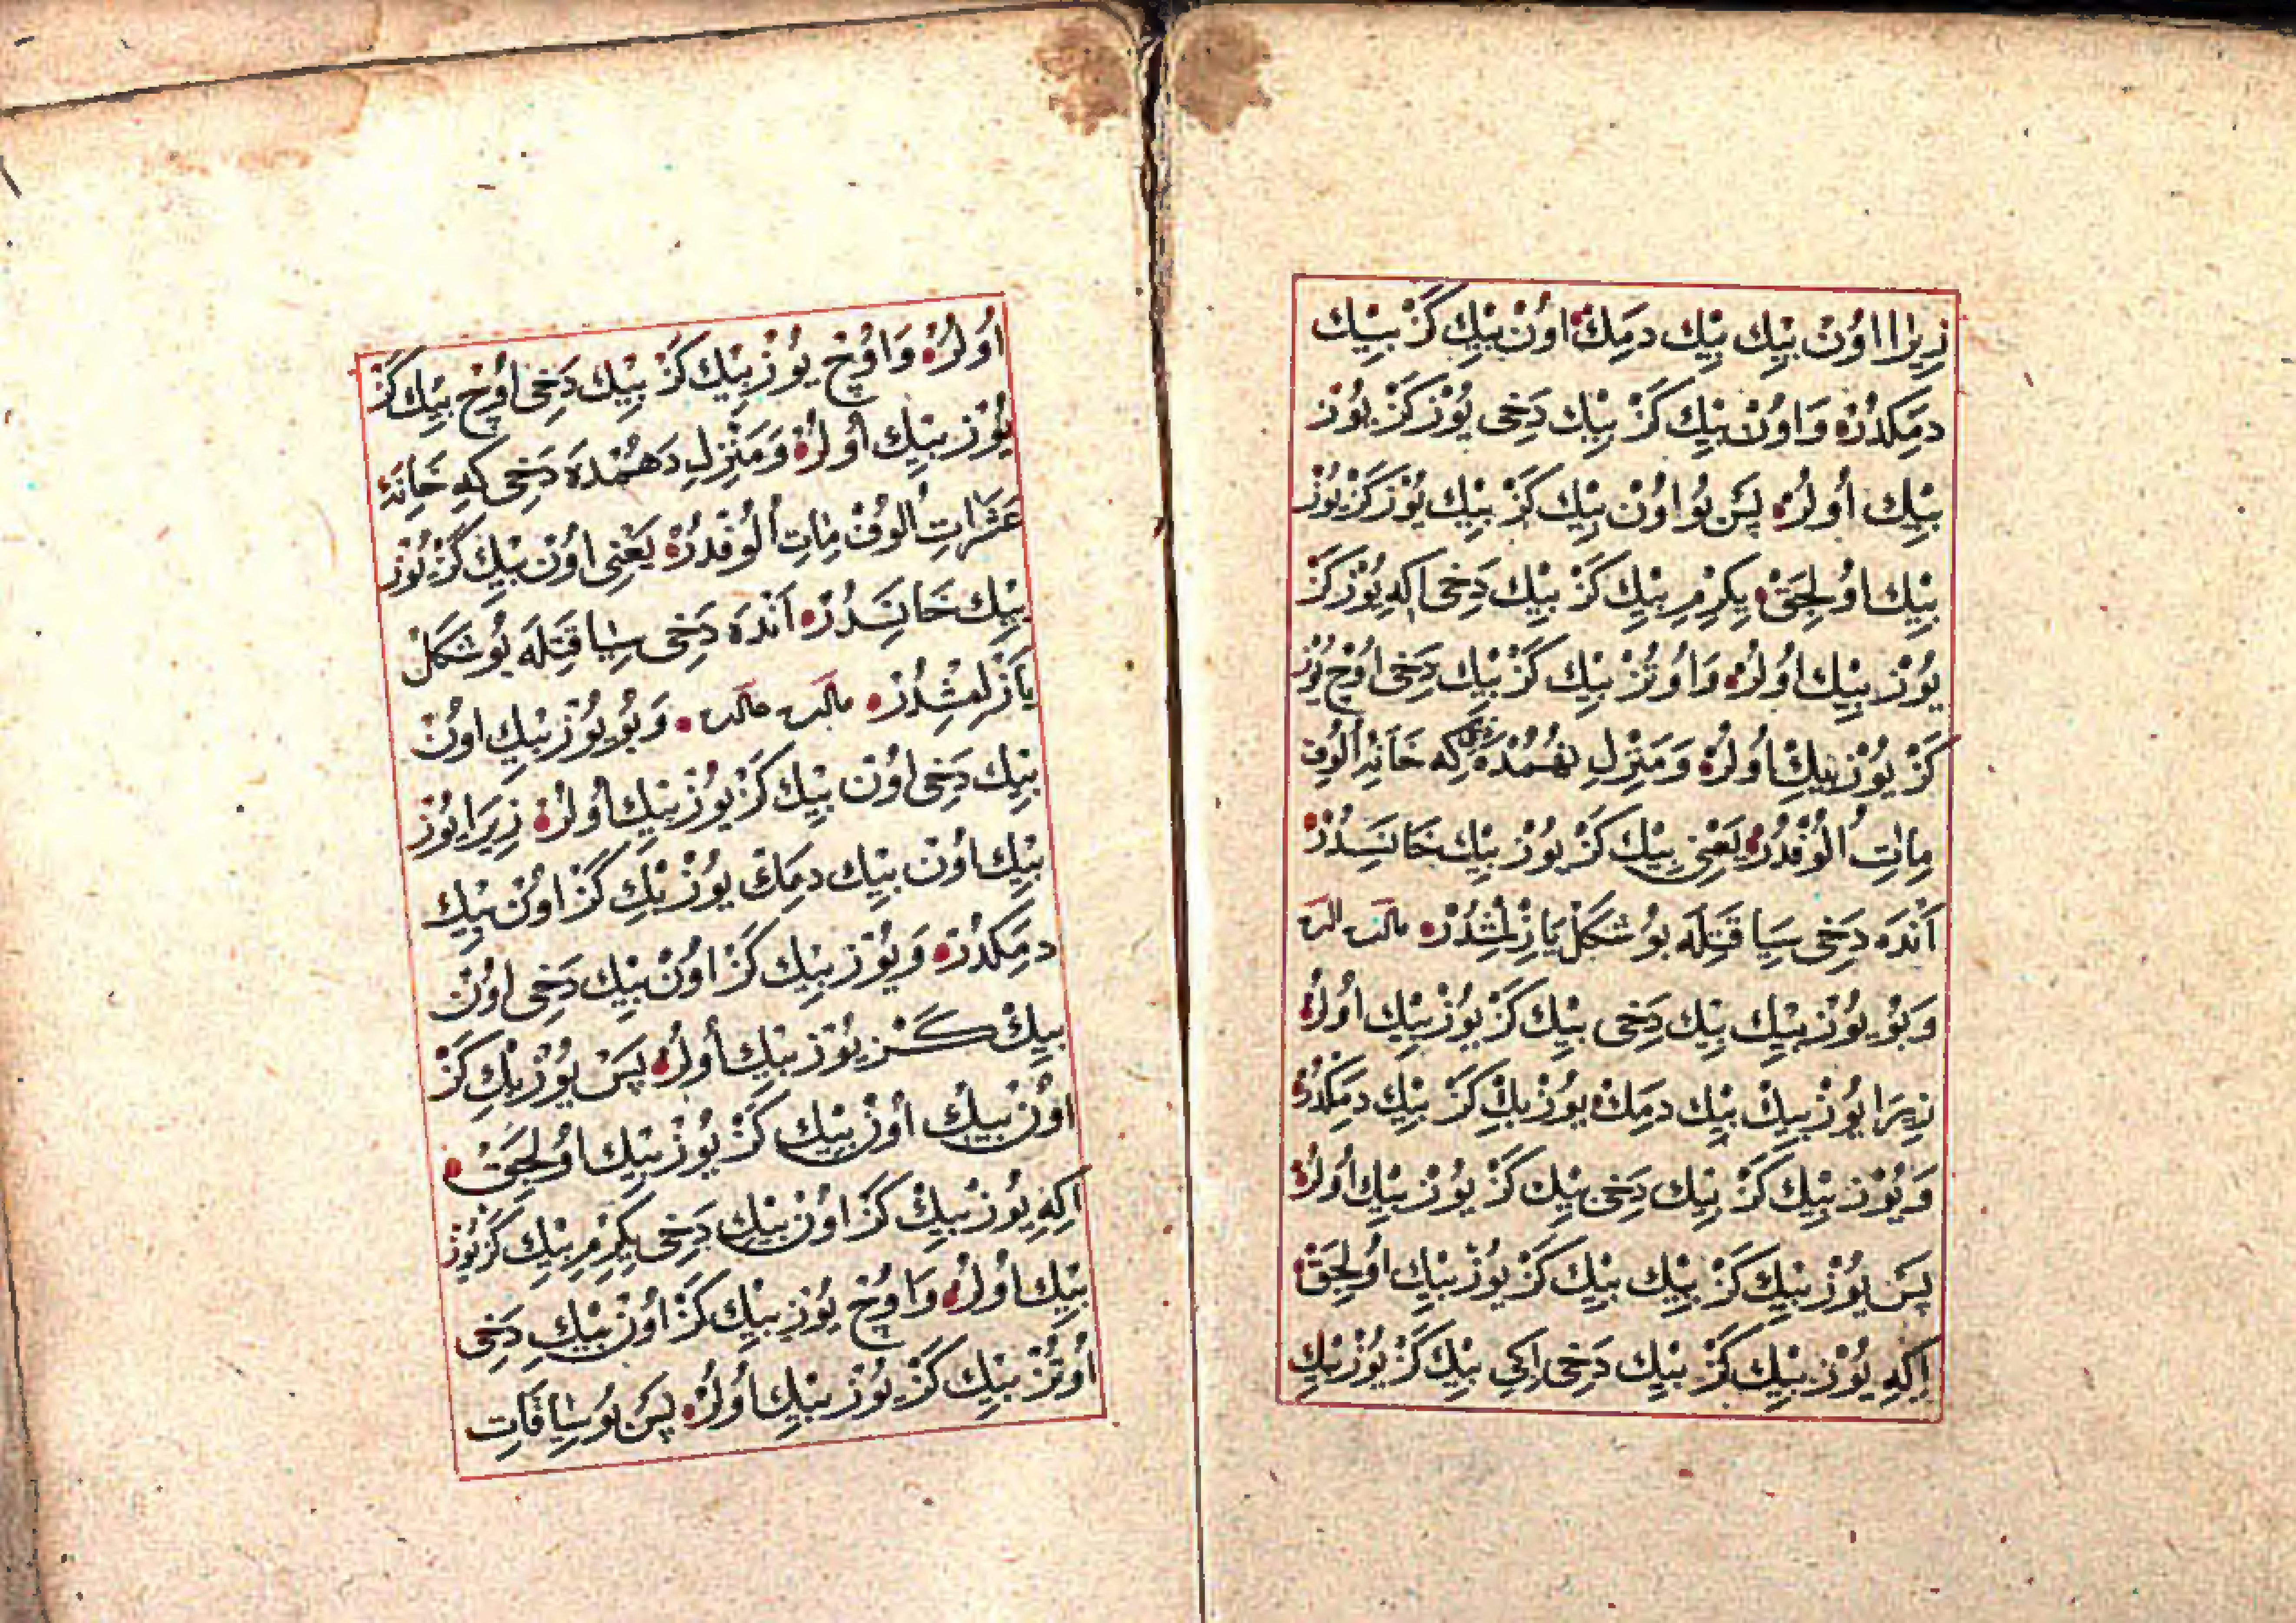 زِيرَا اوُنْ بِيْكْ بِيْكْ دِمَكْ اوُنْ بِيْكْ كَزْ بِيْكْ
دِمَكْدُرْ وَاوُنْ بِيْكْ كَزْ بِيْكْ دَخِى يُوزْ كَزْ يُوزْ
بِيْكْ اُولُرْ پَسْ بُو اوُنْ بِيْكْ كَزْ بِيْكْ يُوزْ كَزْ يُوزْ
بِيْكْ اوُلِجَقْ يِكِرْمِ بِيْكْ كَزْ بِيْكْ دَخِى اِكِهِ يُوزْ كَزْ
يُوزْ بِيْكْ اوُلُرْ وَاوُتُزْ بِيْكْ كَزْ بِيْكْ دَخِى اوُچْ يُوزْ
كَزْ يُوزْ بِيْكْ اوُلُرْ وَمَنْزِلِ نُهُمْدَه دَخِى كِه خَانَهِٔ اُلُوفِ
مِاتِ اُلُوفْدُرْ يَعْنِى بِيْكْ كَزْ يُوزْ بِيْكْ خَانَسِدُرْ
اَنْدَه دَخِى سِيَاقَتِلَه بُو شَكَلْ يَازِلْمِشْدُرْ
وَبُو يُوزْ بِيْكْ بِيْكْ دَخِى بِيْكْ كَزْ يُوزْ بِيْكْ اوُلُرْ
زِيرَا يُوزْ بِيْكْ بِيْكْ دِمَكْ يُوزْ بِيْكْ كَزْ بِيْكْ دِمَكْدُرْ
وَيُوزْ بِيْكْ كَزْ بِيْكْ دَخِى بِيْكْ كَزْ يُوزْ بِيْكْ اوُلُرْ
پَسْ يُوزْ بِيْكْ كَزْ بِيْكْ بِيْكْ كَزْ يُوزْ بِيْكْ اوُلِجَقْ
اِكِهِ يُوزْ بِيْكْ كَزْ بِيْكْ دَخِى اِكِى بِيْكْ كَزْ يُوزْ بِيْكْ
اوُلُرْ وَاوُچْ يُوزْ بِيْكْ كَزْ بِيْكْ دَخِى اوُچْ بِيْكْ كَزْ
يُوزْ بِيْكْ اوُلُرْ وَمَنْزِلِ دَهُمْدَه دَخِى كِه خَانَهِٔ
عَشَرَاتِ اُلُوفْ مِاتِ اُلُوفْدُرْ يَعْنِى اوُنْ بِيْكْ كَزْ يُوزْ
بِيْكْ خَانَسِدُرْ اَنْدَه دَخِى سِيَاقَتِلَه بُو شَكَلْ
يَازِلْمِشْدُرْ وَبُو يُوزْ بِيْكْ اوُنْ
بِيْكْ دَخِى اوُنْ بِيْكْ كَزْ يُوزْ بِيْكْ اوُلُرْ زِيرَا يُوزْ
بِيْكْ اوُنْ بِيْكْ دِمَكْ يُوزْ بِيْكْ كَزْ اوُنْ بِيْكْ
دِمَكْدُرْ وَيُوزْ بِيْكْ كَزْ اوُنْ بِيْكْ دَخِى اوُنْ
بِيْكْ كَزْ يُوزْ بِيْكْ اوُلُرْ پَسْ يُوزْ بِيْكْ كَزْ
اوُنْ بِيْكْ اوُنْ بِيْكْ كَزْ يُوزْ بِيْكْ اوُلِجَقْ
اِكِهِ يُوزْ بِيْكْ كَزْ اوُنْ بِيْكْ دَخِى يِكِرْمِ بِيْكْ كَزْ يُوزْ
بِيْكْ اوُلُرْ وَاوُچْ يُوزْ بِيْكْ كَزْ اوُنْ بِيْكْ دَخِى
اوُتُزْ بِيْكْ كَزْ يُوزْ بِيْكْ اوُلُرْ پَسْ بُو سِيَاقَاتِ